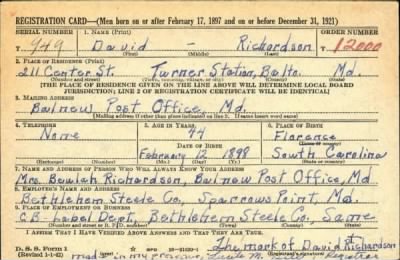 REGISTRATION CARD—(Men born on or after February 17, 1897 and on or before December 31, 1921)
SERIAL NUMBER 1. NAME (Print) ORDER NUMBER
T 949 David - Richardson T 12000
(First) (Middle) (Last)
2. PLACE OF RESIDENCE (Print)
211 Center St. Turner Station, Balto. Md.
(Number and street) (Town, township, village, or city) (County) (State)
[THE PLACE OF RESIDENCE GIVEN ON THE LINE ABOVE WILL DETERMINE LOCAL BOARD
JURISDICTION; LINE 2 OF REGISTRATION CERTIFICATE WILL BE IDENTICAL]
3. MAILING ADDRESS
Balnew Post Office, Md.
[Mailing address if other than place indicated on line 2. If same insert word same]
4. TELEPHONE 5. AGE IN YEARS 6. PLACE OF BIRTH
None 44 Florence
DATE OF BIRTH (Town or county)
February 12 1898 South Carolina
(Exchange) (Number) (Mo.) (Day) (Yr.) (State or country)
7. NAME AND ADDRESS OF PERSON WHO WILL ALWAYS KNOW YOUR ADDRESS
Mrs. Beulah Richardson, Balnew Post Office, Md.
8. EMPLOYER'S NAME AND ADDRESS
Bethlehem Steele Co., Sparrows Point, Md.
9. PLACE OF EMPLOYMENT OR BUSINESS
CB-Label Dept., Bethlehem Steele Co., Same
(Number and street or R. F. D. number) (Town) (County) (State)
I AFFIRM THAT I HAVE VERIFIED ABOVE ANSWERS AND THAT THEY ARE TRUE.
D. S. S. Form 1 The mark of David Richardson
(Revised 1-1-42) made in my presence, Registrar